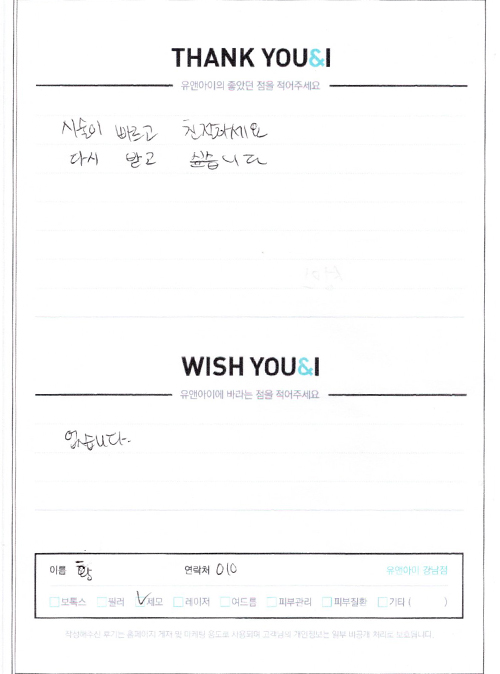 THANK YOU&I
유앤아이의 좋았던 점을 적어주세요
시술이 빠르고 친절하세요
다시 받고 싶습니다
WISH YOU&I
유앤아이에 바라는 점을 적어주세요
없습니다.
이름 황 연락처 010 유앤아이 강남점
보톡스 필러 제모 레이저 여드름 피부관리 피부질환 기타 ( )
작성해주신 후기는 홈페이지 게재 및 마케팅 용도로 사용되며 고객님의 개인정보는 일부 비공개 처리로 보호됩니다.